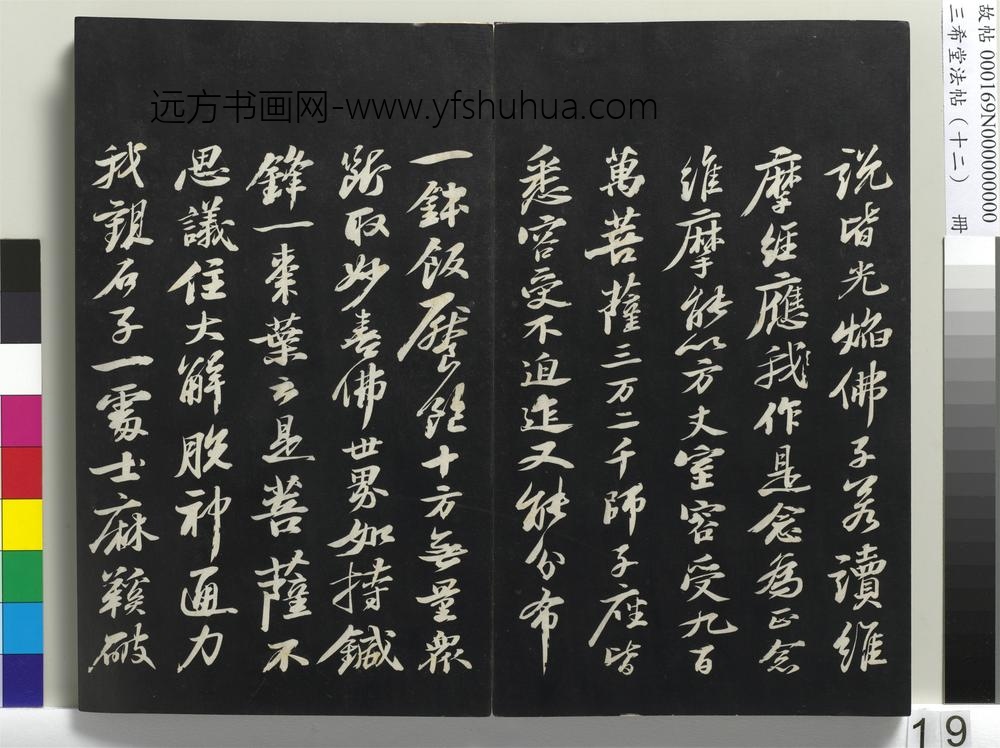 说皆光焰佛子若讀維
摩經應我作是念為正念
維摩能以方丈室容受九百
萬菩薩三万二千師子座皆
悉容受不迫迮又能分布
一鉢飯饜飽十方無量眾
斷取妙喜佛世界如持鍼
鋒一棗葉云是菩薩不
思議住大解脫神通力
我觀石子一處士麻鞵破
远方书画网-www.yfshuhua.com
故帖 000169N000000000
三希堂法帖（十二） 冊
19